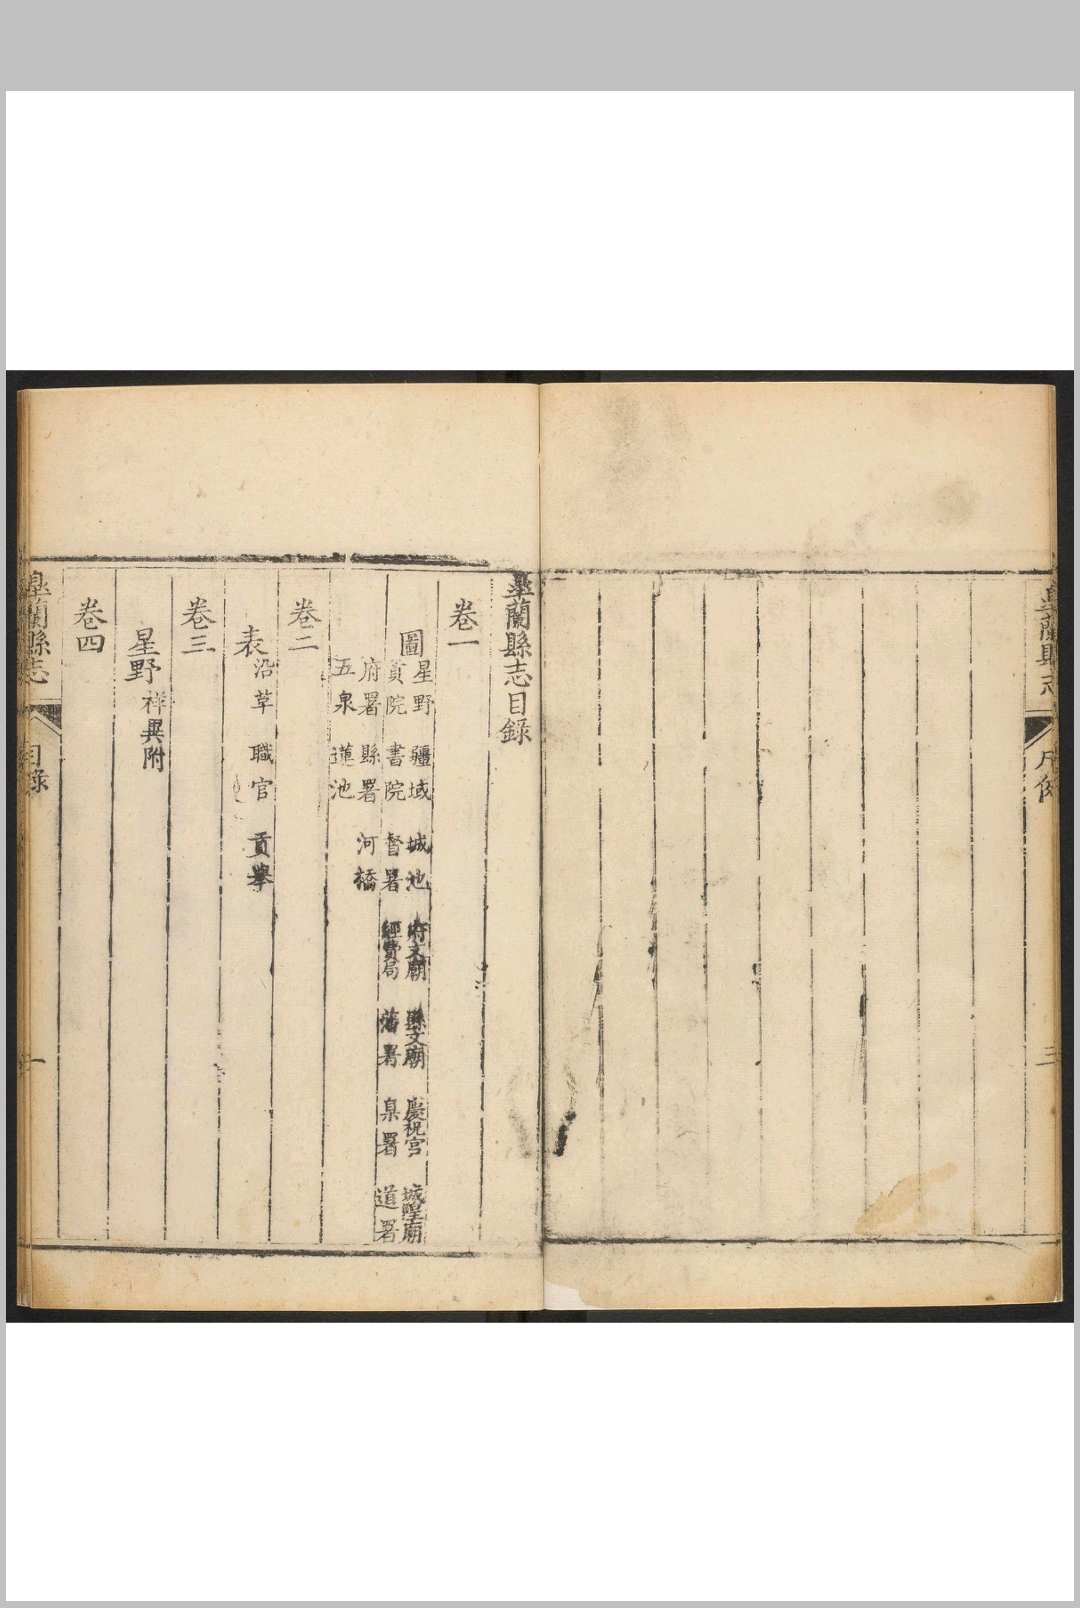 皋蘭縣志
凡例
三
皋蘭縣志目錄
卷一
圖
星野 疆域 城池 府文廟 縣文廟 慶祝宮 城隍廟
貢院 書院 督署 經費局 藩署 臬署 道署
府署 縣署 河橋
五泉 蓮池
卷二
表
沿革 職官 貢舉
卷三
星野 祥異附
卷四
皋蘭縣志
目錄
一